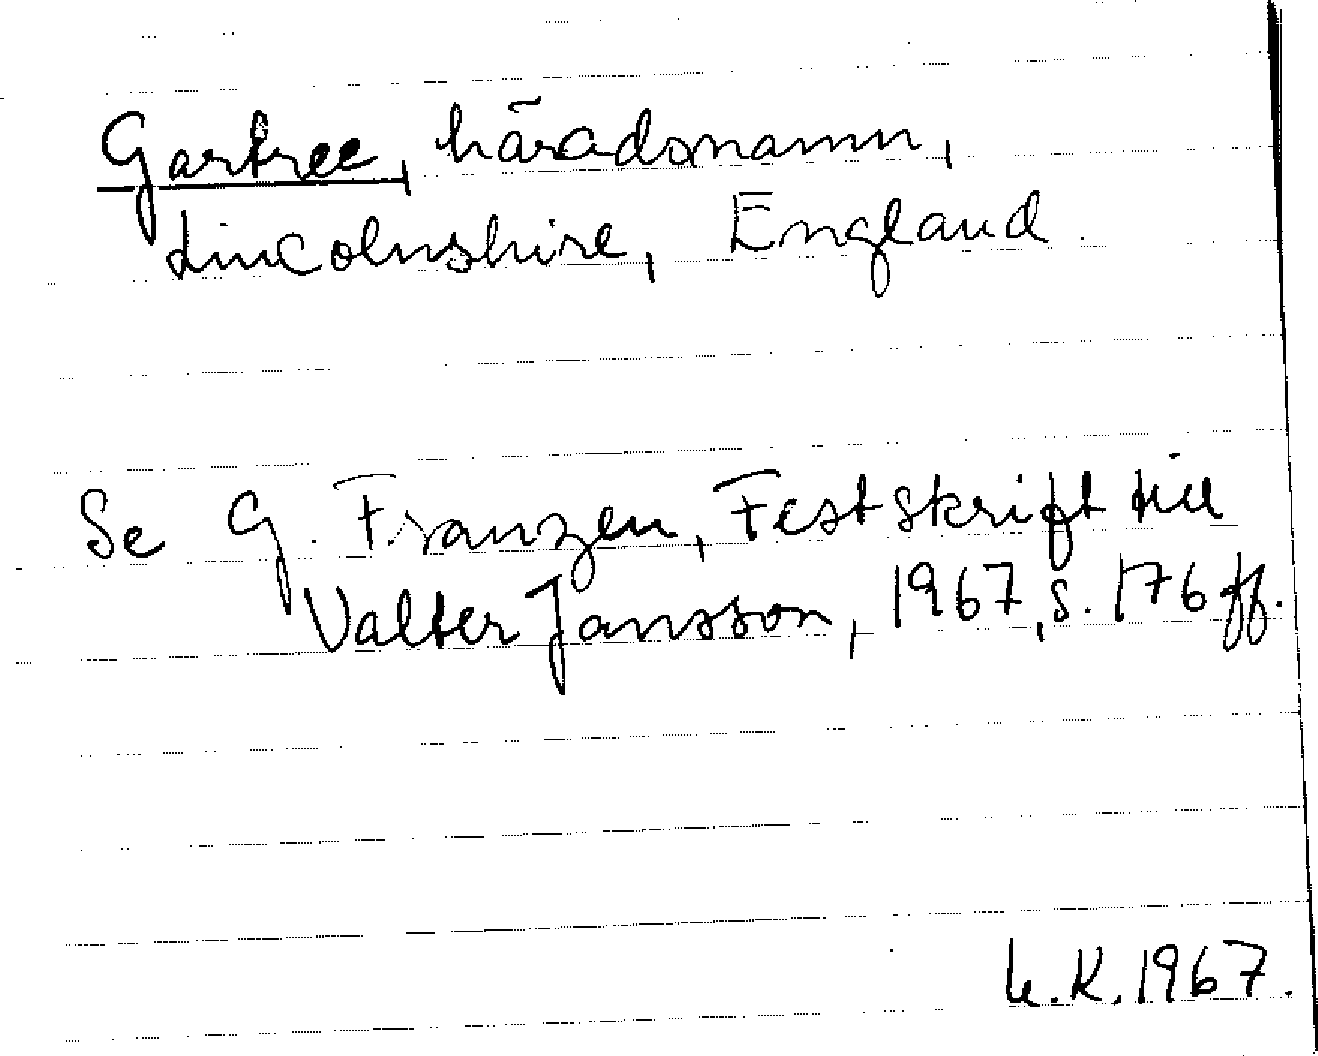 Gartree, häradsnamn,
Lincolnshire, England.
Se G. Franzén, Festskrift till
Valter Jansson, 1967, s. 176 ff.
K. 1967.